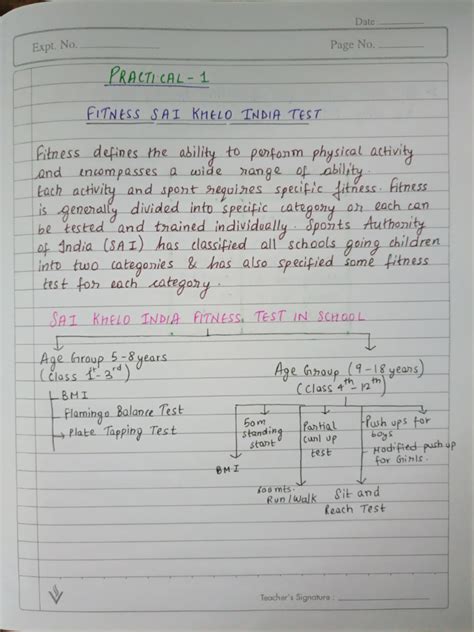 Date
Expt. No.
Page No.
PRACTICAL - 1
FITNESS SAI KHELO INDIA TEST
Fitness defines the ability to perform physical activity
and encompasses a wide range of ability.
Each activity and sport requires specific fitness. Fitness
is generally divided into specific category or each can
be tested and trained individually. Sports Authority
of India (SAI) has classified all schools going children
into two categories & has also specified some fitness
test for each category.
SAI KHELO INDIA FITNESS TEST IN SCHOOL
Age Group 5-8 years
(Class 1st-3rd)
BMI
Flamingo Balance Test
Plate Tapping Test
Age Group (9-18 years)
(Class 4th-12th)
BMI
50m
standing
start
600 mts.
Run/Walk
Partial
curl up
test
Sit and
Reach Test
Push ups for
boys
Modified push up
for Girls.
Teacher's Signature :